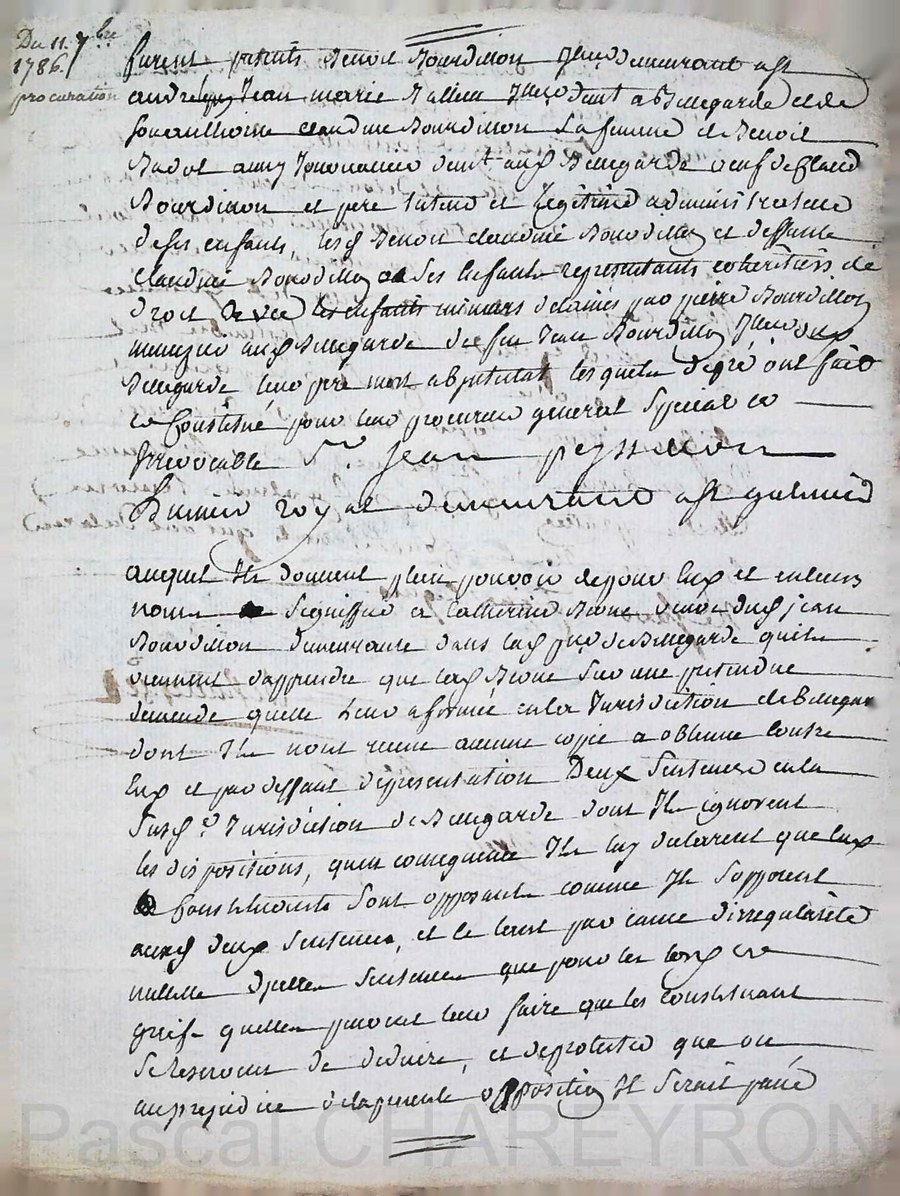 Du 11. 7bre
1786.
procuration
furent présents Benoit Bourdillon demeurant a St
andré Jean marie a Bellegarde et de
son authorité claudine Bourdillon sa femme et Benoit
Badol aussy aud Bellegarde veuf de Claud
Bourdillon et pere tuteur et legitime administrateur
de ses enfants, Benoit claudine Bourdillon et deffunte
claudine Bourdillon ses Enfants representants coheritiers de
droit les enfants mineurs delaissés par pierre Bourdillon
aud Bellegarde de feu Jean Bourdillon
Bellegarde leur pere mort abintestat lesquels de gré ont fait
et Constitué pour leur procureur general special et
Irrevocable Sr. Jean peyssellon
huissier royal demeurant a St galmier
auquel Ils donnent plein pouvoir de pour Eux et en leurs
noms signiffier a Catherine veuve dud jean
Bourdillon demeurante dans lad de Bellegarde qu'ils
viennent d'apprendre que lad sur une pretendue
demende quelle leur a formée en la Jurisdiction de Bellegarde
dont Ils nont reçeu aucune copie a obtenue contre
Eux et par deffaut de presentation Deux Sentences en la
susd. Jurisdiction de Bellegarde dont Ils ignorent
les dispositions, qu'en consequence Ils luy declarent que Eux
Constituants sont opposants comme Ils s'opposent
auxd deux Sentences, et ce tant par cause d'irregularité
nullité d'icelles Sentences que pour les torts et
griefs quelles peuvent leur faire que les constituant
se reservent de deduire, et de protester que ou
au prejudice de la presente opposition Il serait passé
Pascal CHAREYRON